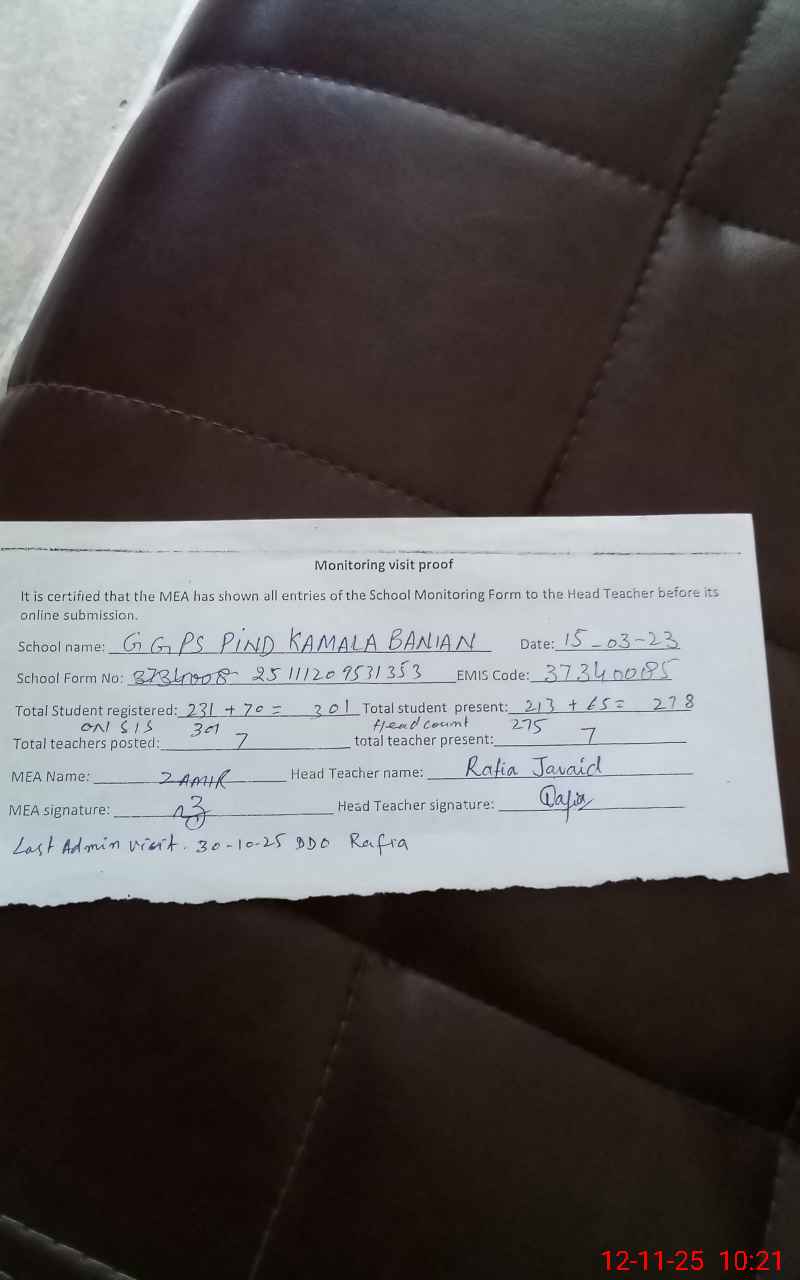 Monitoring visit proof
It is certified that the MEA has shown all entries of the School Monitoring Form to the Head Teacher before its
online submission.
School name: GGPS PIND KAMALA BANIAN Date: 15-03-23
School Form No: 3734008 25111209531353 EMIS Code: 37340085
Total Student registered: 231 + 70 = 301 Total student present: 213 + 65 = 278
ON SIS 301 Head count 275
Total teachers posted: 7 total teacher present: 7
MEA Name: ZAMIR Head Teacher name: Rafia Javaid
MEA signature: Head Teacher signature: Rafia
Last Admin visit. 30-10-25 DDO Rafia
12-11-25 10:21